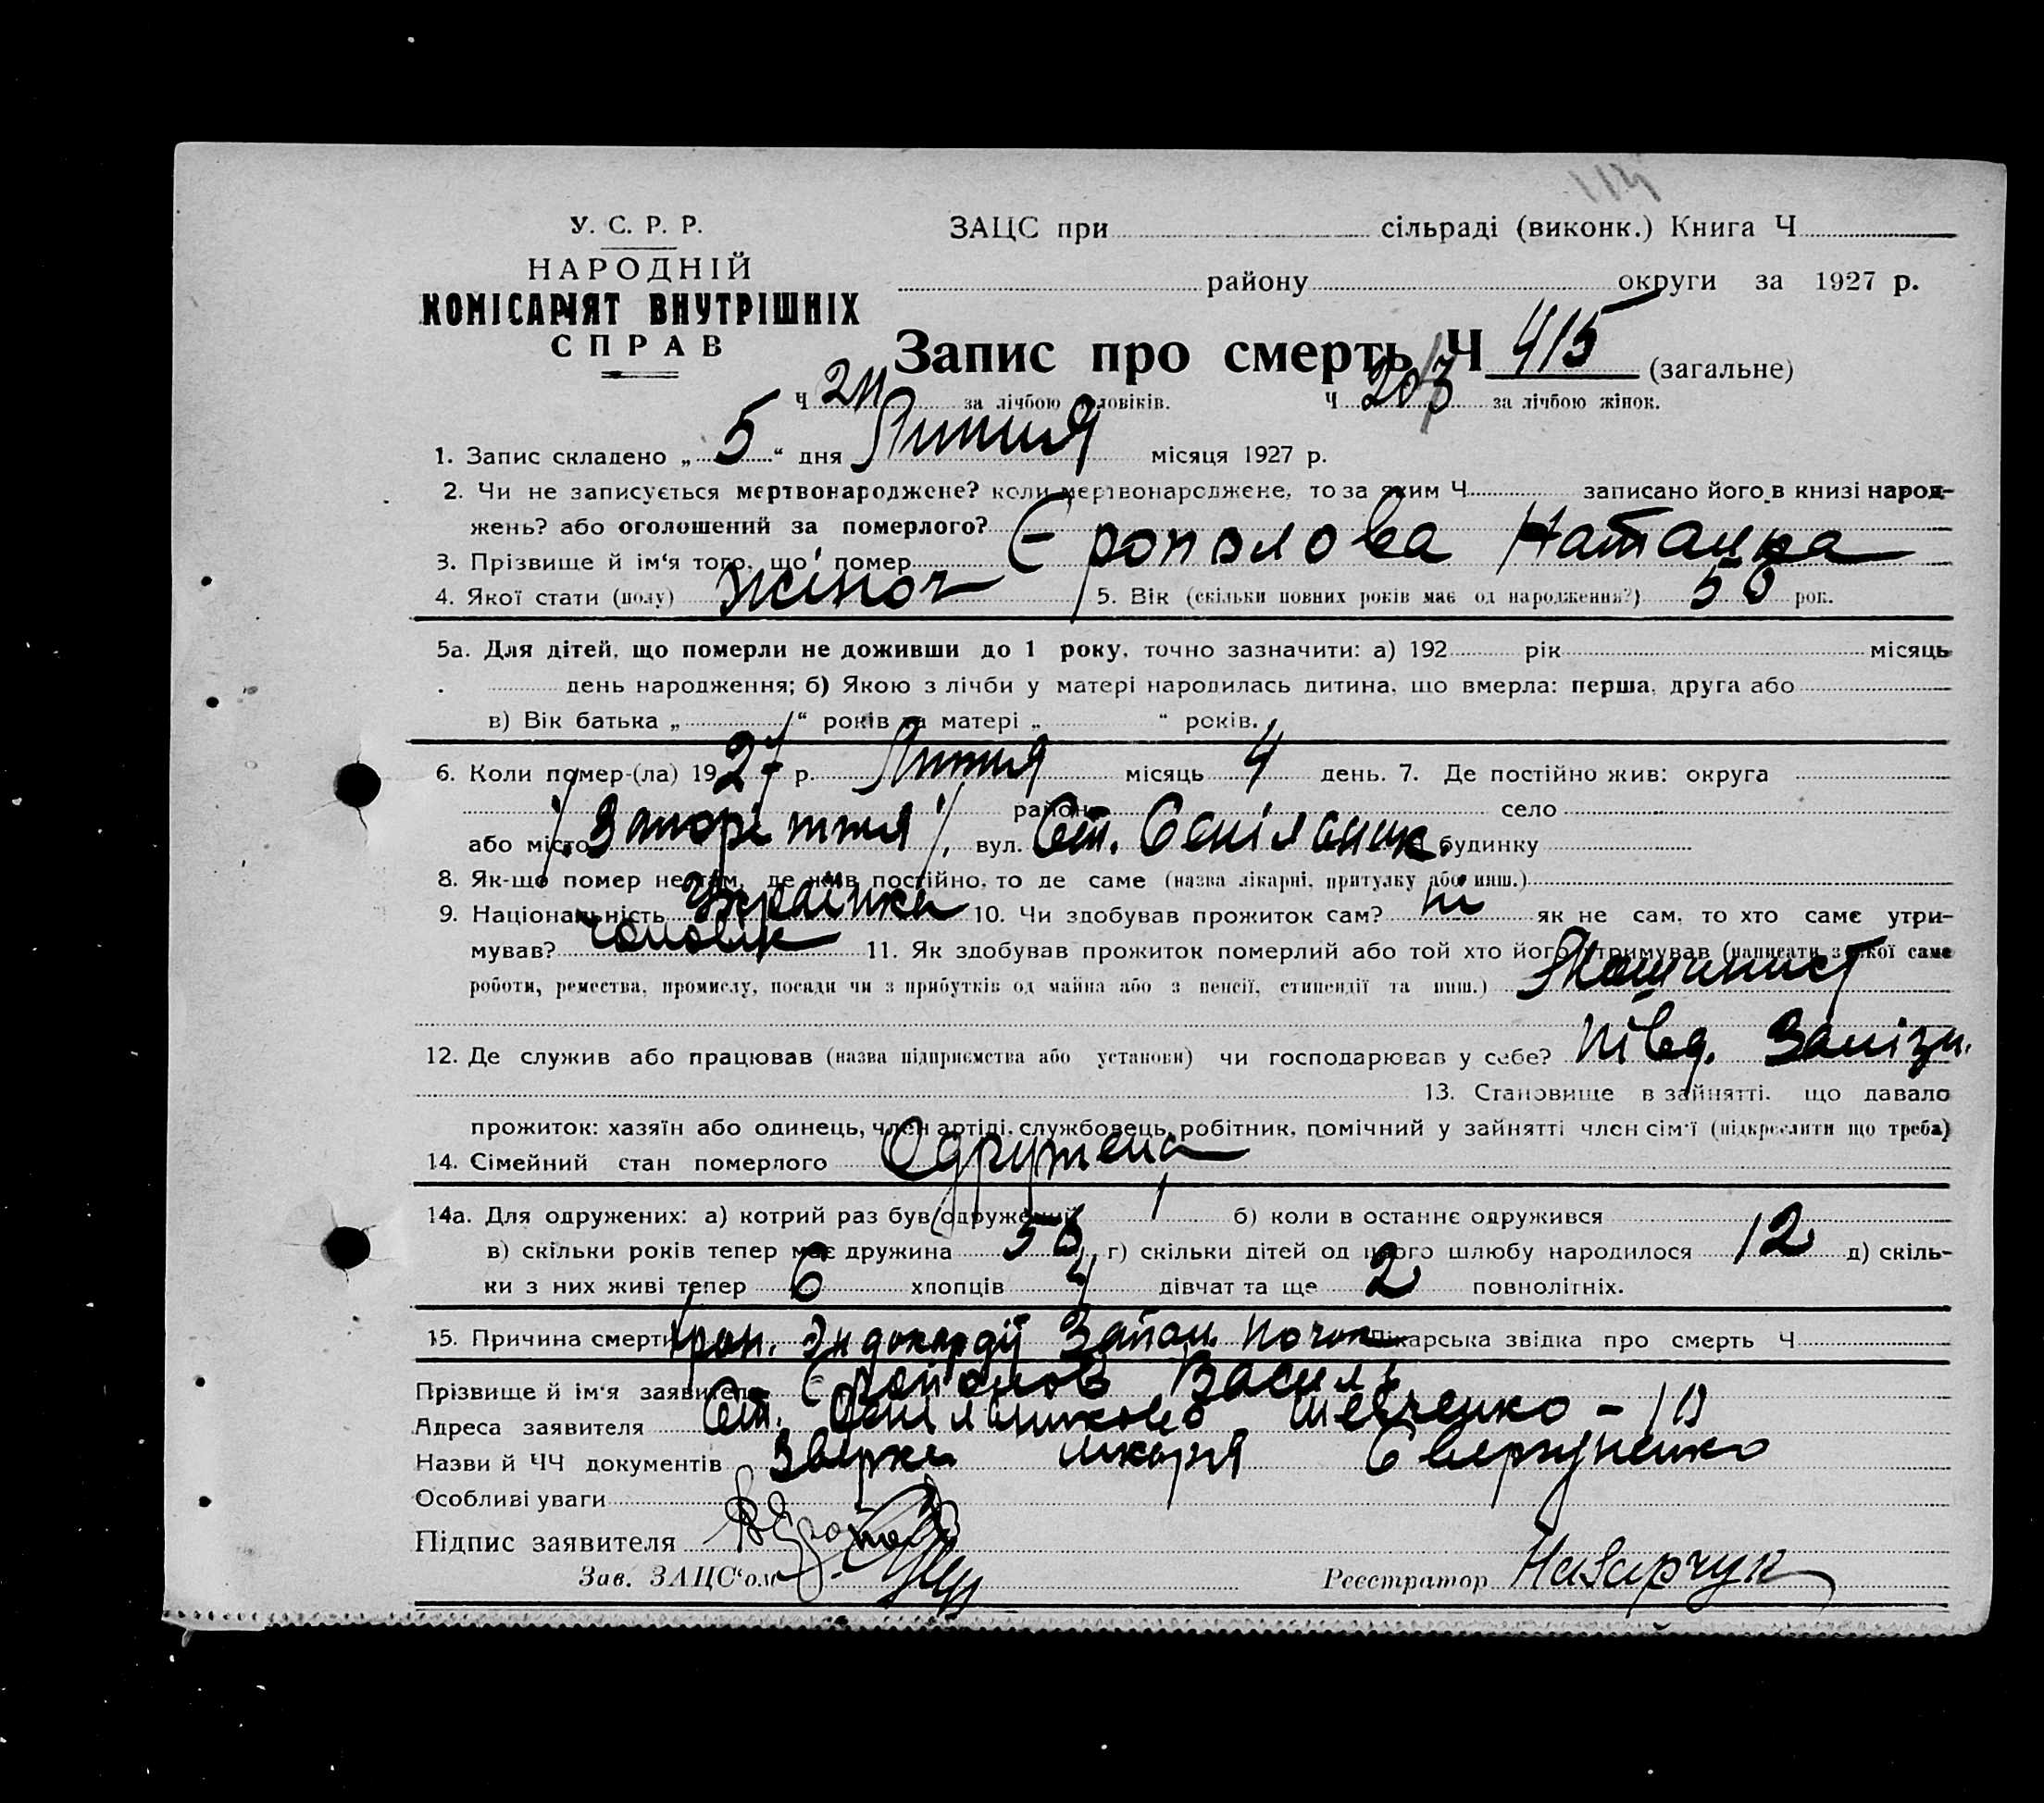 У. С. Р. Р.
НАРОДНІЙ
КОМІСАРІЯТ ВНУТРІШНІХ
СПРАВ
ЗАЦС при сільраді (виконк.) Книга Ч
району округи за 1927 р.
Запис про смерть Ч 415 (загальне)
Ч за лічбою чоловіків. Ч 203 за лічбою жінок.
1. Запис складено „ 5 “ дня Липня місяця 1927 р.
2. Чи не записується мертвонароджене? коли мертвонароджене, то за яким Ч записано його в книзі народ-
жень? або оголошений за померлого?
3. Прізвище й ім‘я того, що помер Єрополова Наталка
4. Якої стати (полу) жіноч 5. Вік (скільки повних років має од народження?) 50 рок.
5а. Для дітей, що померли не доживши до 1 року, точно зазначити: а) 192 рік місяць
день народження; б) Якою з лічби у матері народилась дитина, що вмерла: перша, друга або
в) Вік батька „ “ років та матері „ “ років.
6. Коли помер-(ла) 1927 р. Липня місяць 4 день. 7. Де постійно жив: округа
район село
або місто Запоріжжя, вул. Ст. будинку
8. Як-що помер не там, де жив постійно, то де саме (назва лікарні, притулку або инш.)
9. Національність Українка 10. Чи здобував прожиток сам? ні як не сам, то хто саме утри-
мував? чоловік 11. Як здобував прожиток померлий або той хто його утримував (написати з якої саме
роботи, ремества, промислу, посади чи з прибутків од майна або з пенсії, стипендії та инш.) Машиніст
12. Де служив або працював (назва підприємства або установи) чи господарював у себе? Півд. Залізн.
13. Становище в зайнятті, що давало
прожиток: хазяїн або одинець, член артілі, службовець, робітник, помічний у зайнятті член сім‘ї (підкреслити що треба)
14. Сімейний стан померлого Одружена
14а. Для одружених: а) котрий раз був одружений 1 б) коли в останнє одружився
в) скільки років тепер має дружина г) скільки дітей од цього шлюбу народилося 12 д) скіль-
ки з них живі тепер 6 хлопців 4 дівчат та ще 2 повнолітніх.
15. Причина смерти Хрон. Эндокардій Запал. Лікарська звідка про смерть Ч
Прізвище й ім‘я заявителя Єрополов Василь
Адреса заявителя Ст. Шевченко
Назви й ЧЧ документів лікаря
Особливі уваги
Підпис заявителя
Зав. ЗАЦС‘ом Реєстратор Назарчук